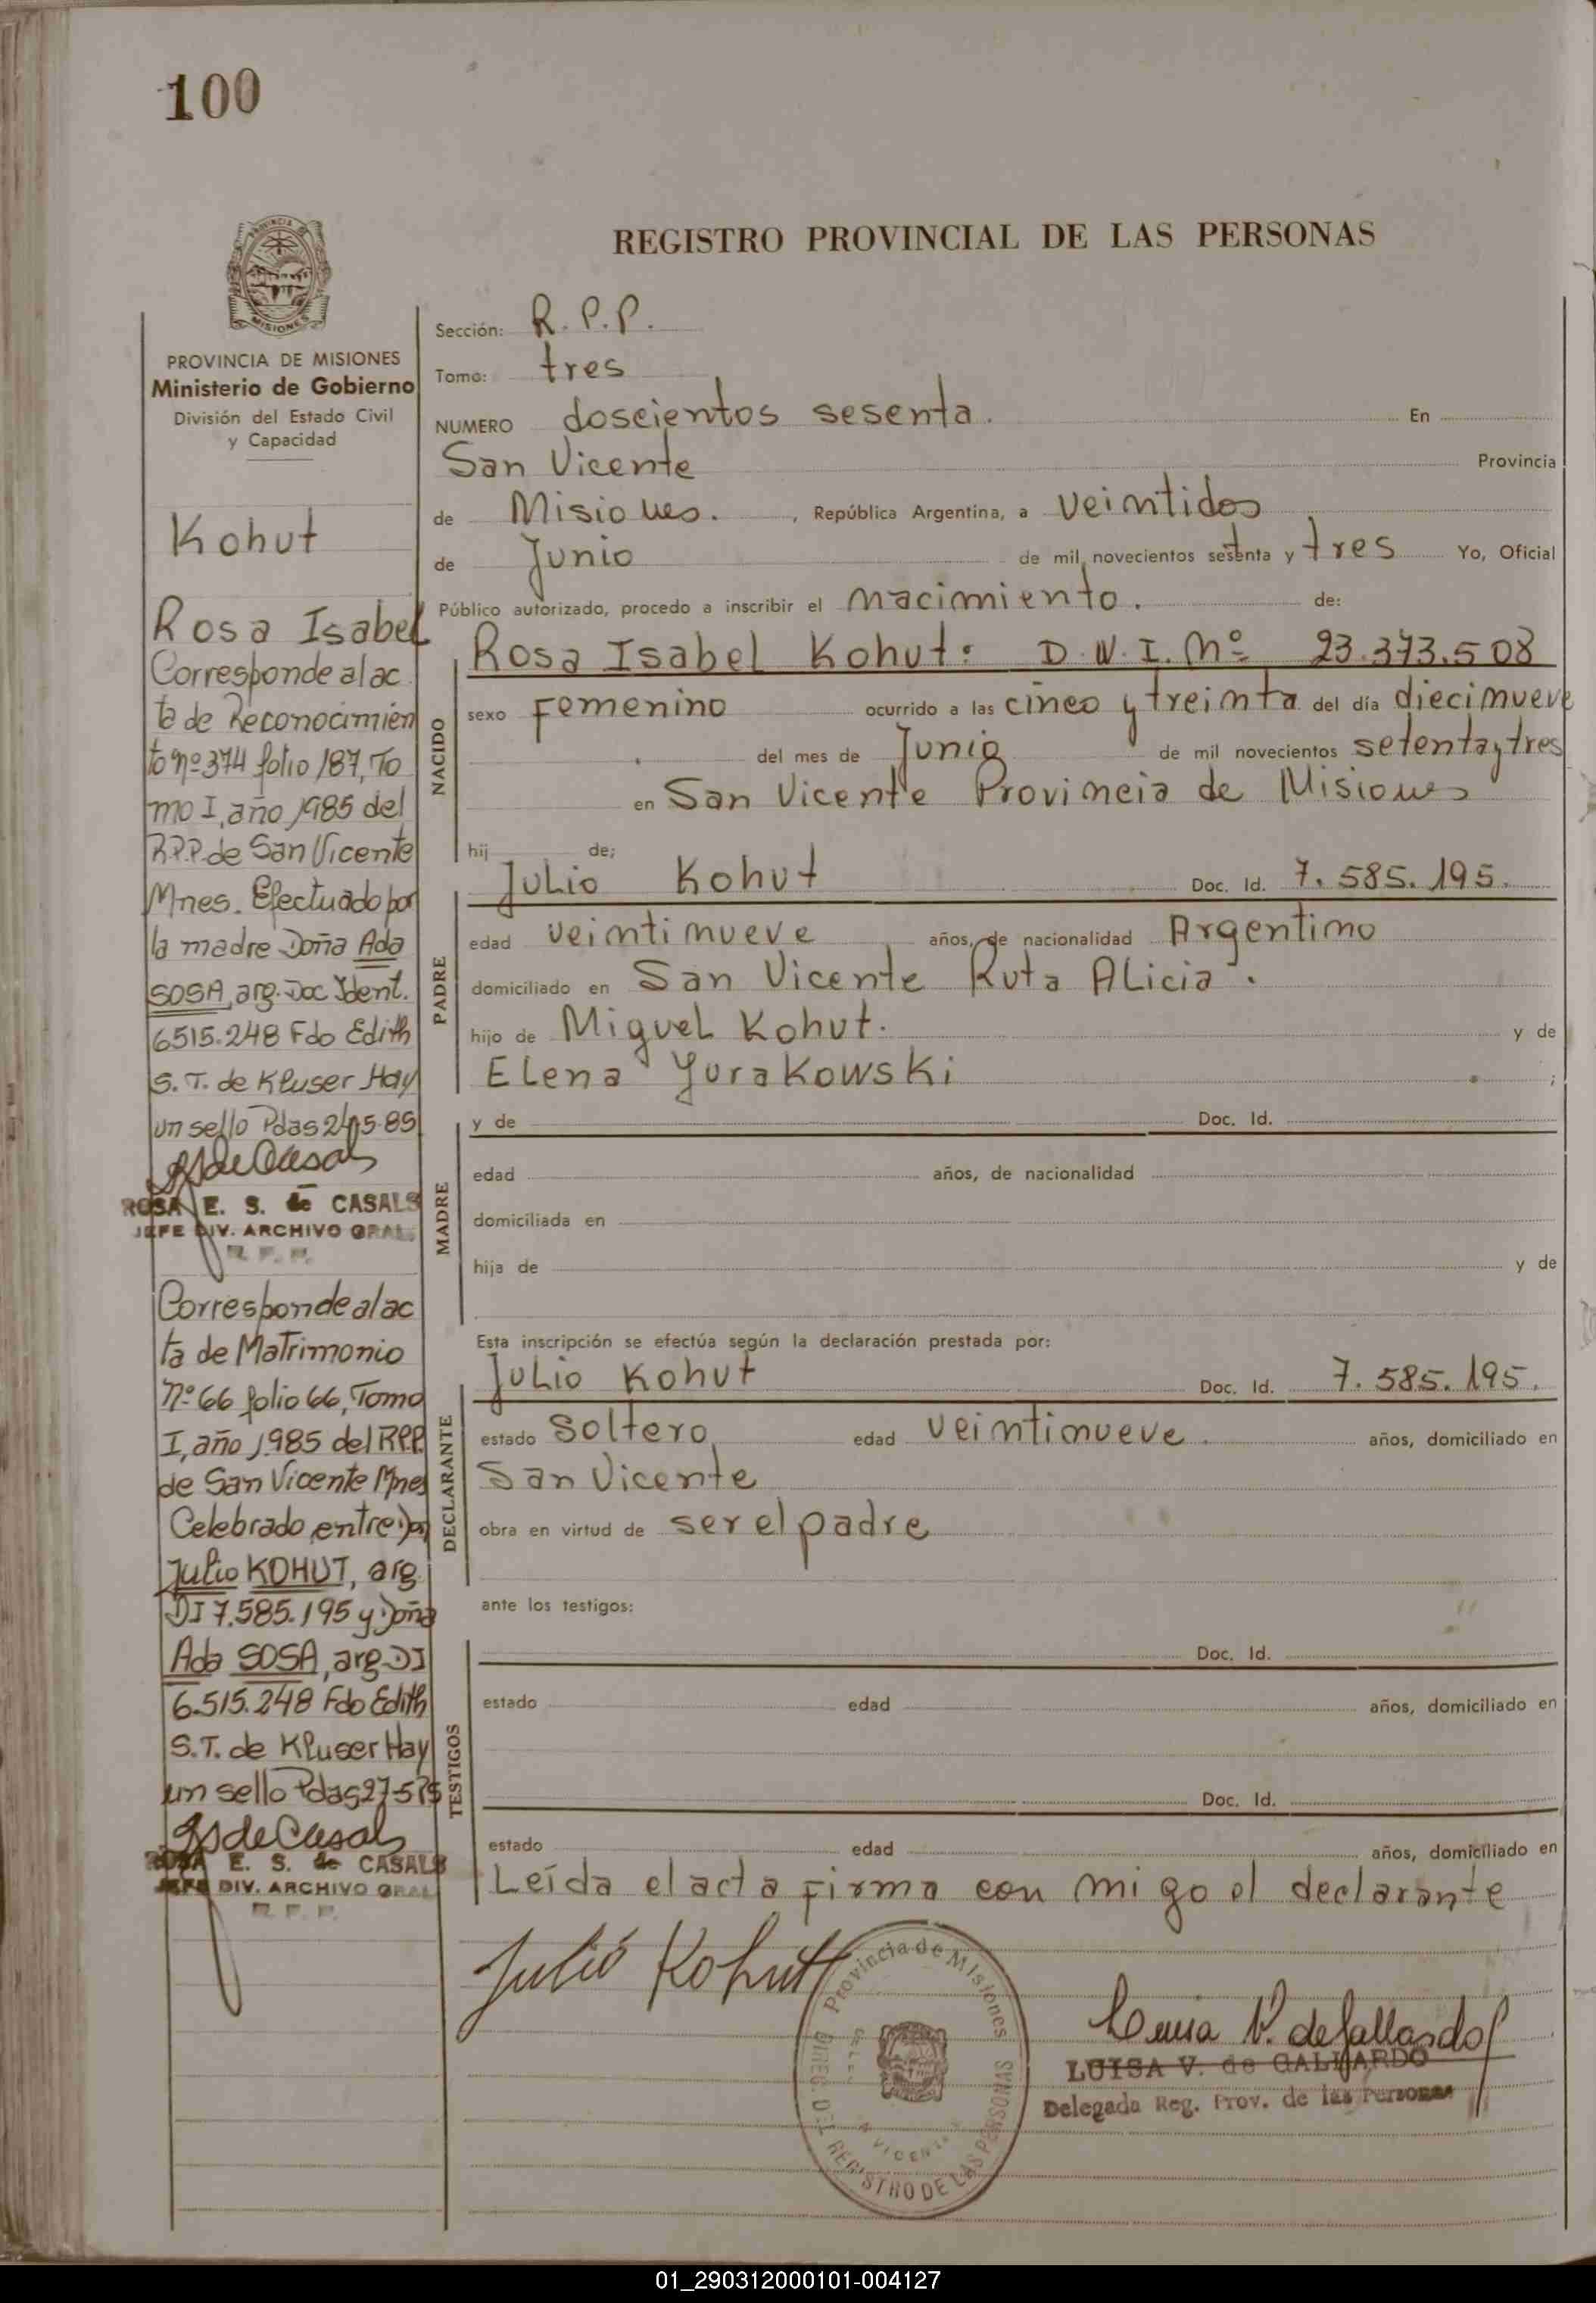 100
REGISTRO PROVINCIAL DE LAS PERSONAS
MISIONES
PROVINCIA DE MISIONES
Ministerio de Gobierno
División del Estado Civil
y Capacidad
Kohut
Rosa Isabel
Corresponde al ac
ta de Reconocimien
to nº 374 folio 187, To
mo I, año 1985 del
R.P.P. de San Vicente
Mnes. Efectuado por
la madre Doña Ada
SOSA, arg. Doc Ident.
6515.248 Fdo Edith
S. T. de Kluser Hay
un sello Pdas 24-5-85
ROSA E. S. de CASALS
JEFE DIV. ARCHIVO GRAL.
R. P. P.
Corresponde al ac
ta de Matrimonio
Nº 66 folio 66, Tomo
I, año 1985 del R.P.P.
de San Vicente Mnes
Celebrado entre Don
Julio KOHUT, arg.
DI 7.585.195 y Doña
Ada SOSA, arg. DI
6.515.248 Fdo Edith
S.T. de Kluser Hay
un sello Pdas 27-5-
ROSA E. S. de CASALS
JEFE DIV. ARCHIVO GRAL
R. P. P.
Sección: R. P. P.
Tomo: tres
NUMERO doscientos sesenta. En
San Vicente Provincia
de Misiones. , República Argentina, a veintidos
de Junio de mil novecientos sesenta y tres Yo, Oficial
Público autorizado, procedo a inscribir el nacimiento. de:
NACIDO
Rosa Isabel Kohut: D.N.I. Nº 23.373.508
sexo Femenino ocurrido a las cinco y treinta del día diecinueve
del mes de Junio de mil novecientos setenta y tres
en San Vicente Provincia de Misiones
hij de;
PADRE
Julio Kohut Doc. Id. 7.585.195.
edad veintinueve años, de nacionalidad Argentino
domiciliado en San Vicente Ruta Alicia.
hijo de Miguel Kohut. y de
Elena Yurakowski ;
MADRE
y de Doc. Id.
edad años, de nacionalidad
domiciliada en
hija de y de
Esta inscripción se efectúa según la declaración prestada por:
DECLARANTE
Julio Kohut Doc. Id. 7.585.195.
estado Soltero edad veintinueve. años, domiciliado en
San Vicente
obra en virtud de ser el padre
ante los testigos:
TESTIGOS
Doc. Id.
estado edad años, domiciliado en
Doc. Id.
estado edad años, domiciliado en
Leída el acta firma con migo el declarante
Julio Kohutt
Provincia de Misiones
DIREC. DEL REGISTRO DE LAS PERSONAS
Luisa V. de Gallardo
LUISA V. de GALLARDO
Delegada Reg. Prov. de las Personas
01_290312000101-004127